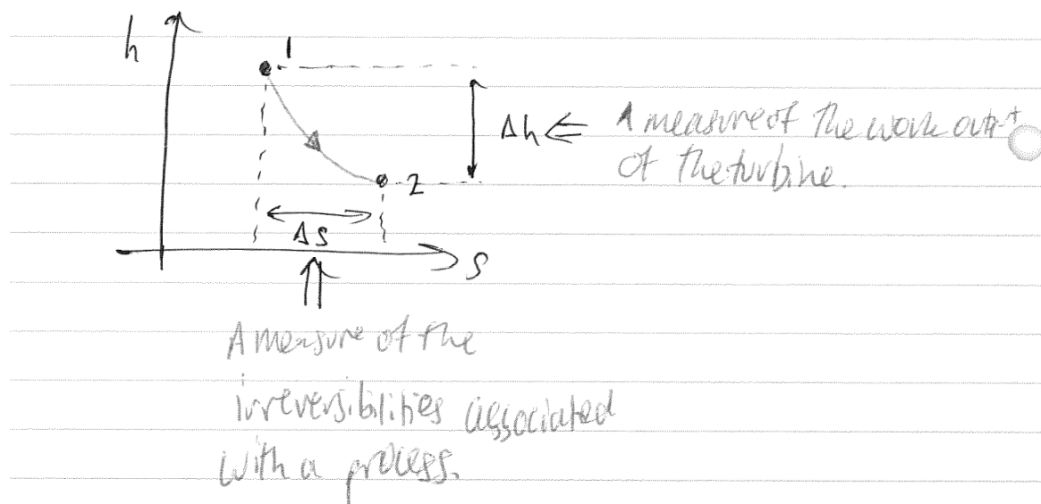 h
1
Δh ⇐ A measure of the work out
of the turbine.
2
Δs
s
A measure of the
irreversibilities associated
with a process.